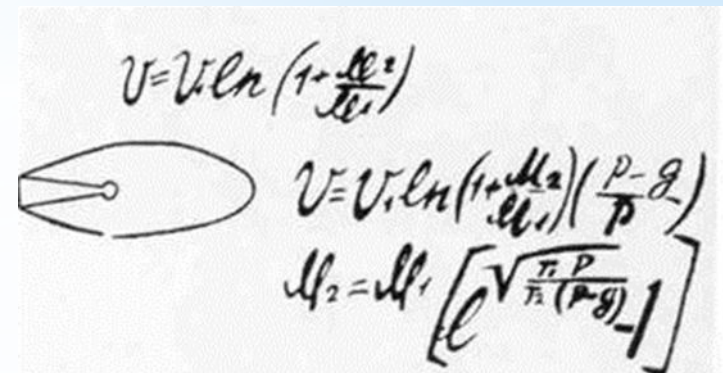 V=V₁ln(1+M₂/M₁)
V=V₁ln(1+M₂/M₁)(p-g/p)
M₂=M₁[e^√(T₁ p/T₂ (p-g))-1]